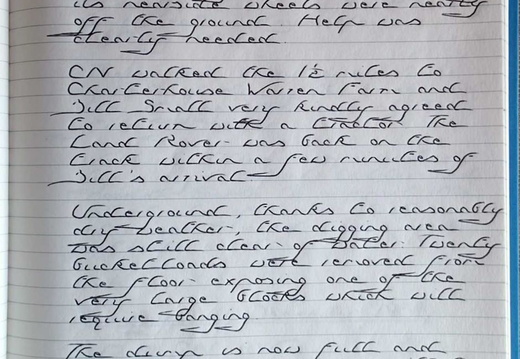 its nearside wheels were nearly
off the ground. Help was
clearly needed.
CN walked the 1½ miles to
Charterhouse Warren Farm and
Bill Small very kindly agreed
to return with a tractor. The
Land Rover was back on the
track within a few minutes of
Bill's arrival.
Underground, thanks to reasonably
dry weather, the digging area
was still clear of water. Twenty
bucket loads were removed from
the floor exposing one of the
very large blocks which will
require banging.
The dump is now full and